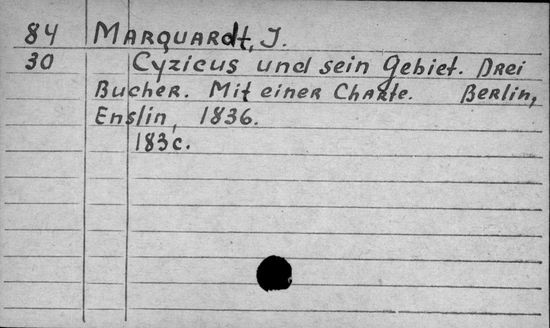 84 MARQUARdt, J.
30 Cyzicus und sein Gebiet. DRei
BucheR. Mit eineR ChaRte. BeRlin,
Enslin, 1836.
183c.